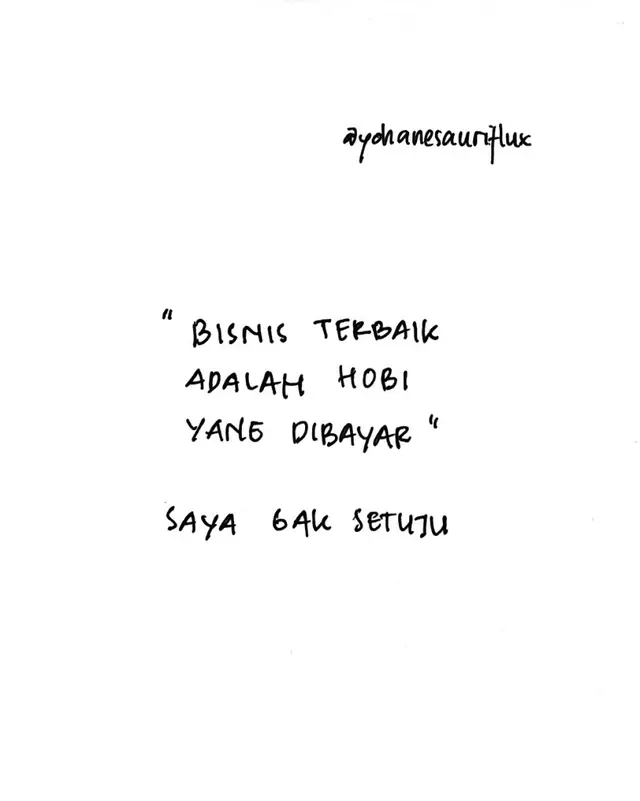 @yohanesauriflux
" BISNIS TERBAIK
ADALAH HOBI
YANG DIBAYAR "
SAYA GAK SETUJU